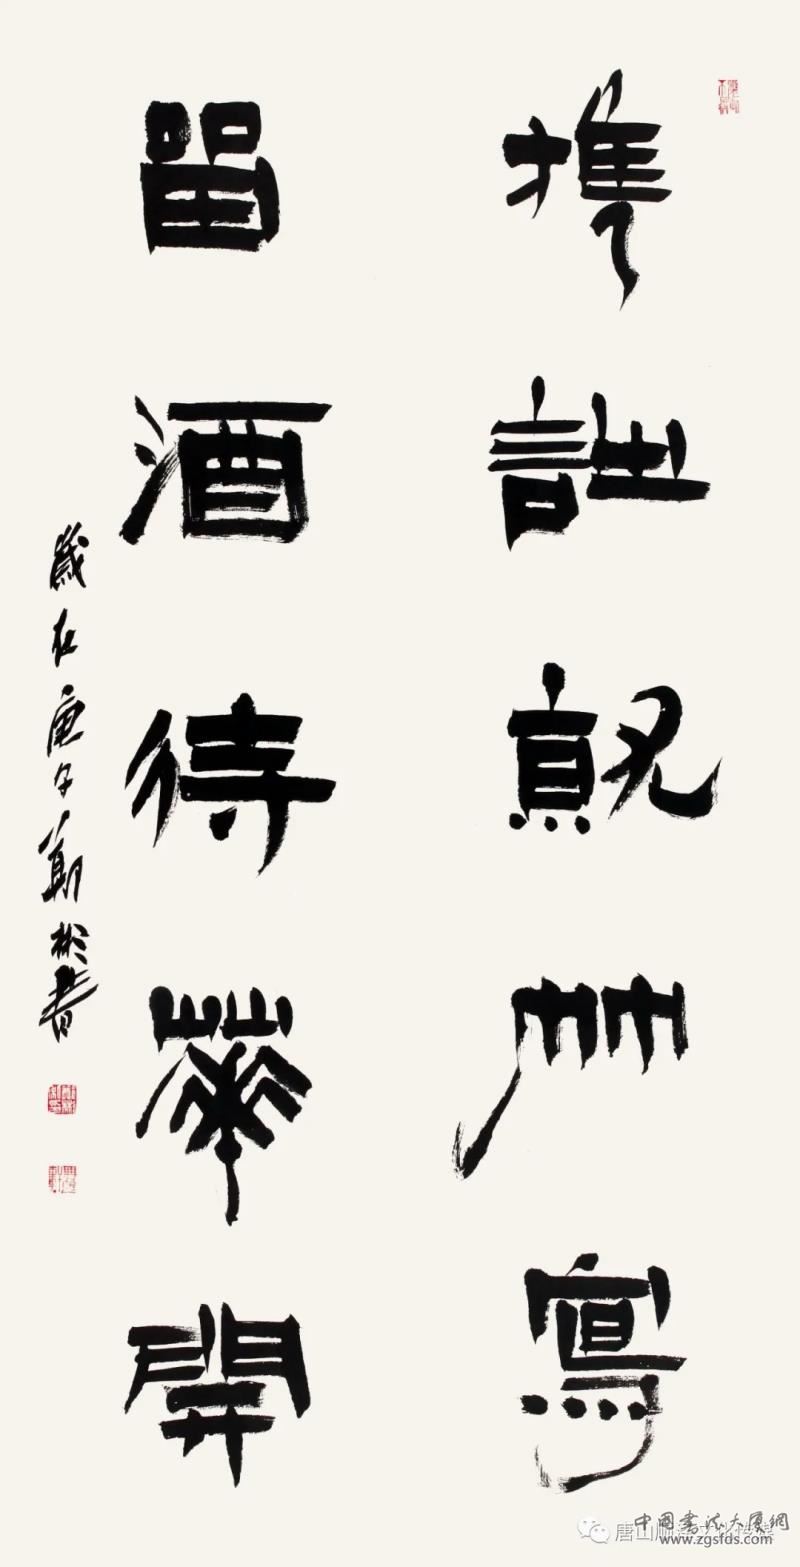 携詩就竹寫
留酒待華開
歲在庚子鄭彬書
中國書法大厦網
www.zgsfds.com